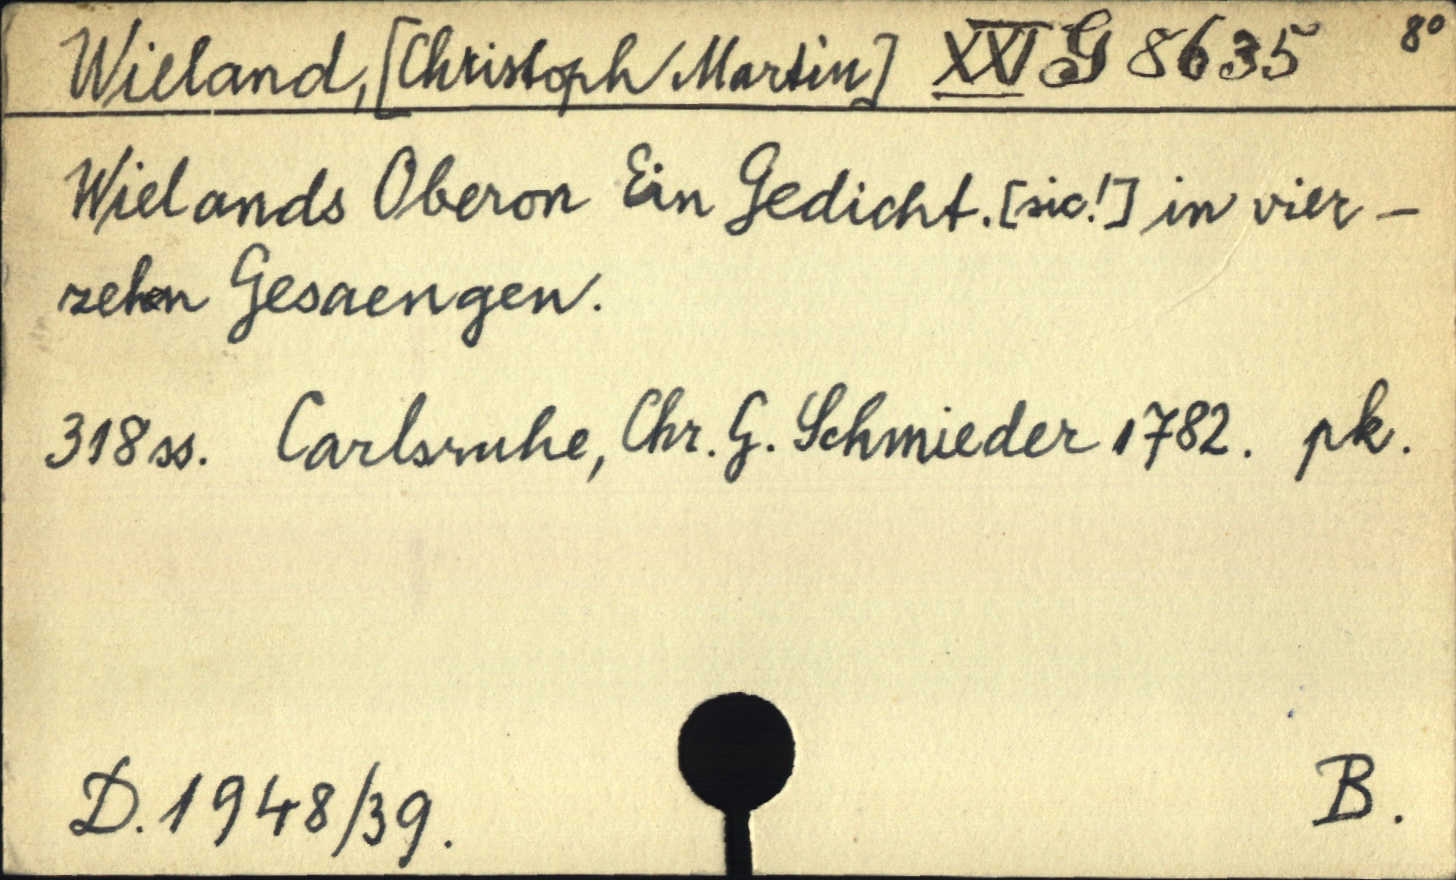 Wieland, [Christoph Martin] XVI G 8635 8°
Wielands Oberon Ein Gedicht. [sic!] in vier-
zehn Gesaengen.
318 ss. Carlsruhe, Chr. G. Schmieder 1782. pk.
D. 1948/39. B.